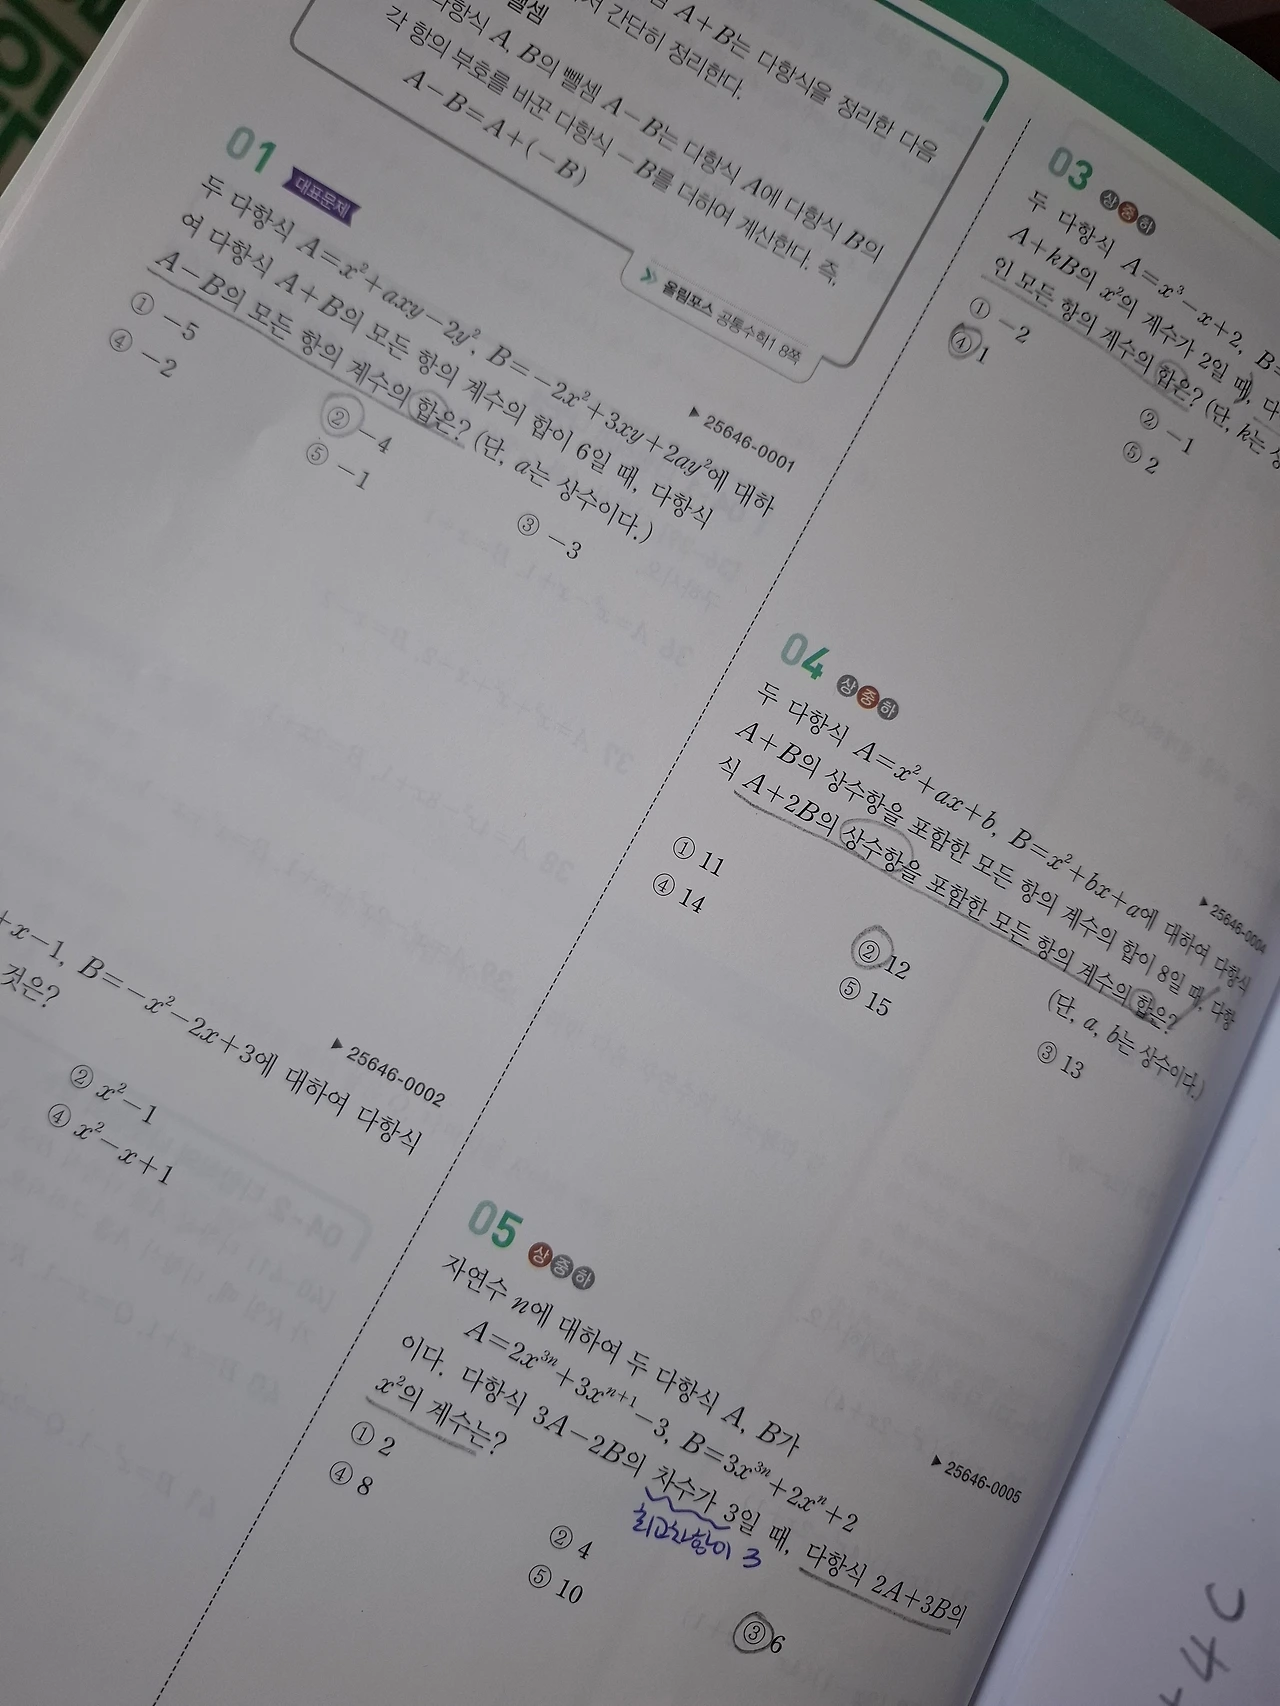 A+B는 다항식을 정리한 다음
간단히 정리한다.
뺄셈
다항식 A, B의 뺄셈 A-B는 다항식 A에 다항식 B의
각 항의 부호를 바꾼 다항식 -B를 더하여 계산한다. 즉,
A-B=A+(-B)
올림포스 공통수학1 8쪽
01 대표문제
▶ 25646-0001
두 다항식 A=x²+axy-2y², B=-2x²+3xy+2ay²에 대하
여 다항식 A+B의 모든 항의 계수의 합이 6일 때, 다항식
A-B의 모든 항의 계수의 합은? (단, a는 상수이다.)
① -5
② -4
③ -3
④ -2
⑤ -1
▶ 25646-0002
+x-1, B=-x²-2x+3에 대하여 다항식
것은?
② x²-1
④ x²-x+1
03 상중하
두 다항식 A=x³-x+2, B=
A+kB의 x²의 계수가 2일 때, 다
인 모든 항의 계수의 합은? (단, k는 상
① -2
② -1
④ 1
⑤ 2
04 상중하
▶ 25646-0004
두 다항식 A=x²+ax+b, B=x²+bx+a에 대하여 다항식
A+B의 상수항을 포함한 모든 항의 계수의 합이 8일 때, 다항
식 A+2B의 상수항을 포함한 모든 항의 계수의 합은?
(단, a, b는 상수이다.)
① 11
② 12
③ 13
④ 14
⑤ 15
05 상중하
▶ 25646-0005
자연수 n에 대하여 두 다항식 A, B가
A=2x³ⁿ+3xⁿ⁺¹-3, B=3x³ⁿ+2xⁿ+2
이다. 다항식 3A-2B의 차수가 3일 때, 다항식 2A+3B의
최고차항이 3
x²의 계수는?
① 2
② 4
③ 6
④ 8
⑤ 10
+4C